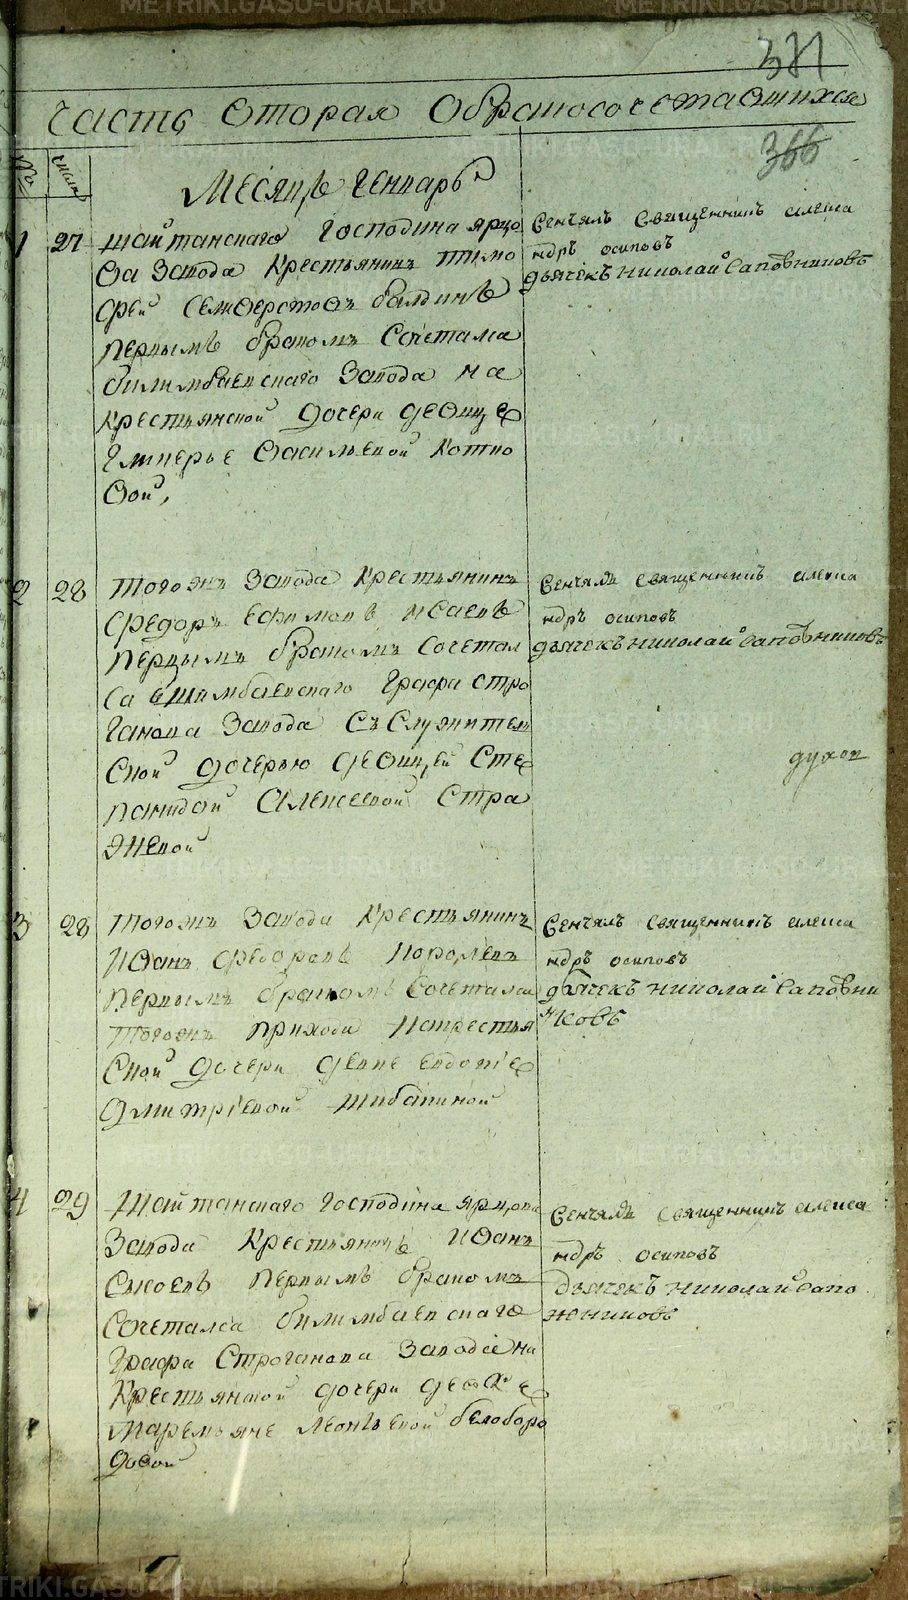 METRIKI.GASO-URAL.RU METRIKI.GASO-URAL.RU
371
часть вторая обратосочетавшихся
366
№ число
Месяцъ генварь
1 27 шайтанскаго господина ярцо
ва завода крестьянинъ тимо
фей селиверстовъ балдинъ
первымъ бракомъ сочетался
билимбаевскаго завода на
крестьянской дочери девице
гликерье васильевой котно
вой,
венчалъ священникъ алекса
ндръ осиповъ
дьячекъ николай сапожниковъ
2 28 тогожъ завода крестьянинъ
федоръ ефимовъ исаевъ
первымъ бракомъ сочетал
ся билимбаевскаго графа стро
ганова завода съ служитель
ской дочерью девицей сте
панидой алексеевой стра
жевой
венчалъ священникъ алекса
ндръ осиповъ
дьячекъ николай сапожниковъ
духов
3 28 тогожъ завода крестьянинъ
иванъ федоровъ королевъ
первымъ бракомъ сочетался
тогожъ прихода накрестья
ской дочери девке евдотье
дмитріевой шибакиной
венчалъ священникъ алекса
ндръ осиповъ
дьячекъ николай сапожни
ковъ
4 29 шайтанскаго господина ярцова
завода крестьянинъ иванъ
сысоевъ первымъ бракомъ
сочетался билимбаевскаго
графа строганова завода на
крестьянской дочери девке
маремьяне леонтьевой белоборо
довой
венчалъ священникъ алекса
ндръ осиповъ
дьячекъ николай сапо
жниковъ